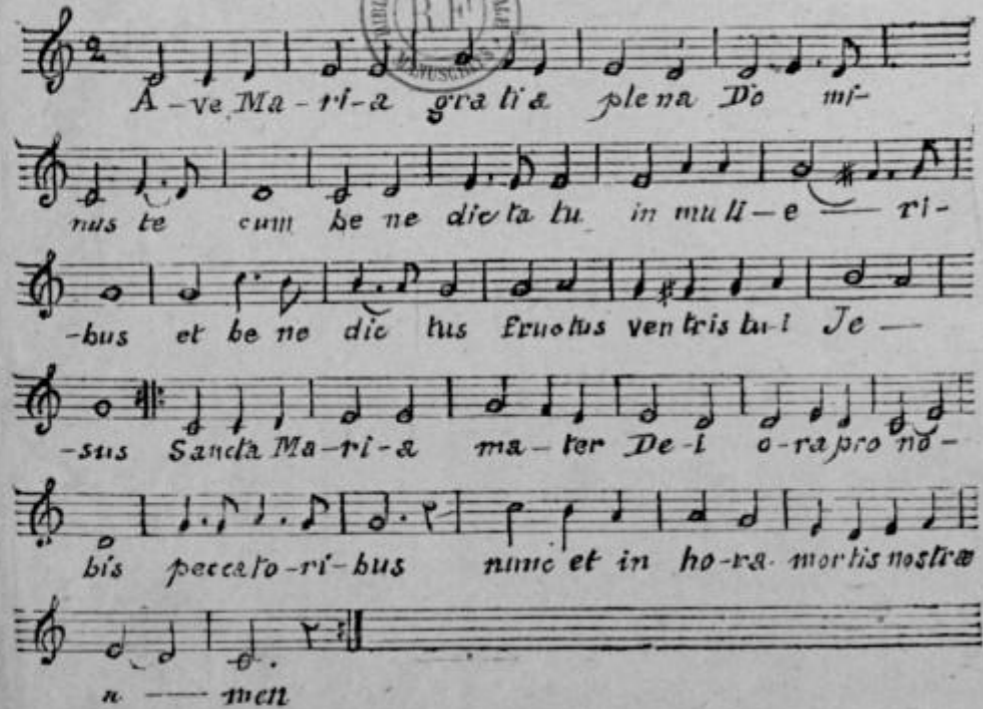 2
A-ve Ma-ri-a gratia plena Do mi-
nus te cum be ne dicta tu in muli-e — ri-
-bus et be ne dic tus fructus ventris tu-i Je —
-sus Sancta Ma-ri-a ma-ter De-i o-ra pro no-
bis peccato-ri-bus nunc et in ho-ra mortis nostræ
a — men